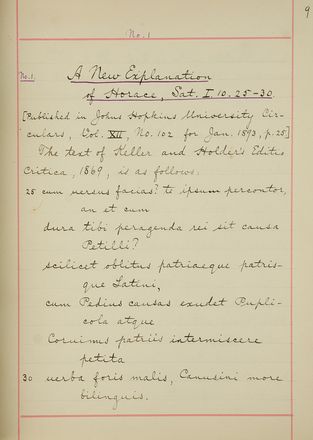 9
No. 1
No. 1.
A New Explanation
of Horace, Sat. I. 10. 25–30.
[Published in Johns Hopkins University Cir-
culars, Vol. XII, No. 102 for Jan. 1893, p. 25]
The text of Keller and Holder's Editio
Critica, 1869, is as follows:
25 cum uersus facias? te ipsum percontor,
an et cum
dura tibi peragenda rei sit causa
Petilli?
scilicet oblitus patriaeque patris-
que Latini,
cum Pedius causas exudet Pupli-
cola atque
Coruinus patriis intermiscere
petita
30 uerba foris malis, Canusini more
bilinguis.